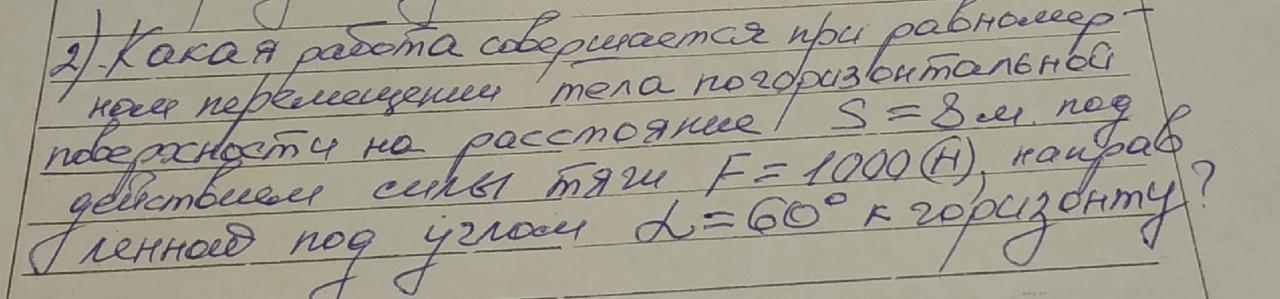 2). Какая работа совершается при равномер-
ном перемещении тела по горизонтальной
поверхности на расстояние S = 8 м. под
действием силы тяги F = 1000 (Н), направ
ленной под углом α = 60° к горизонту?